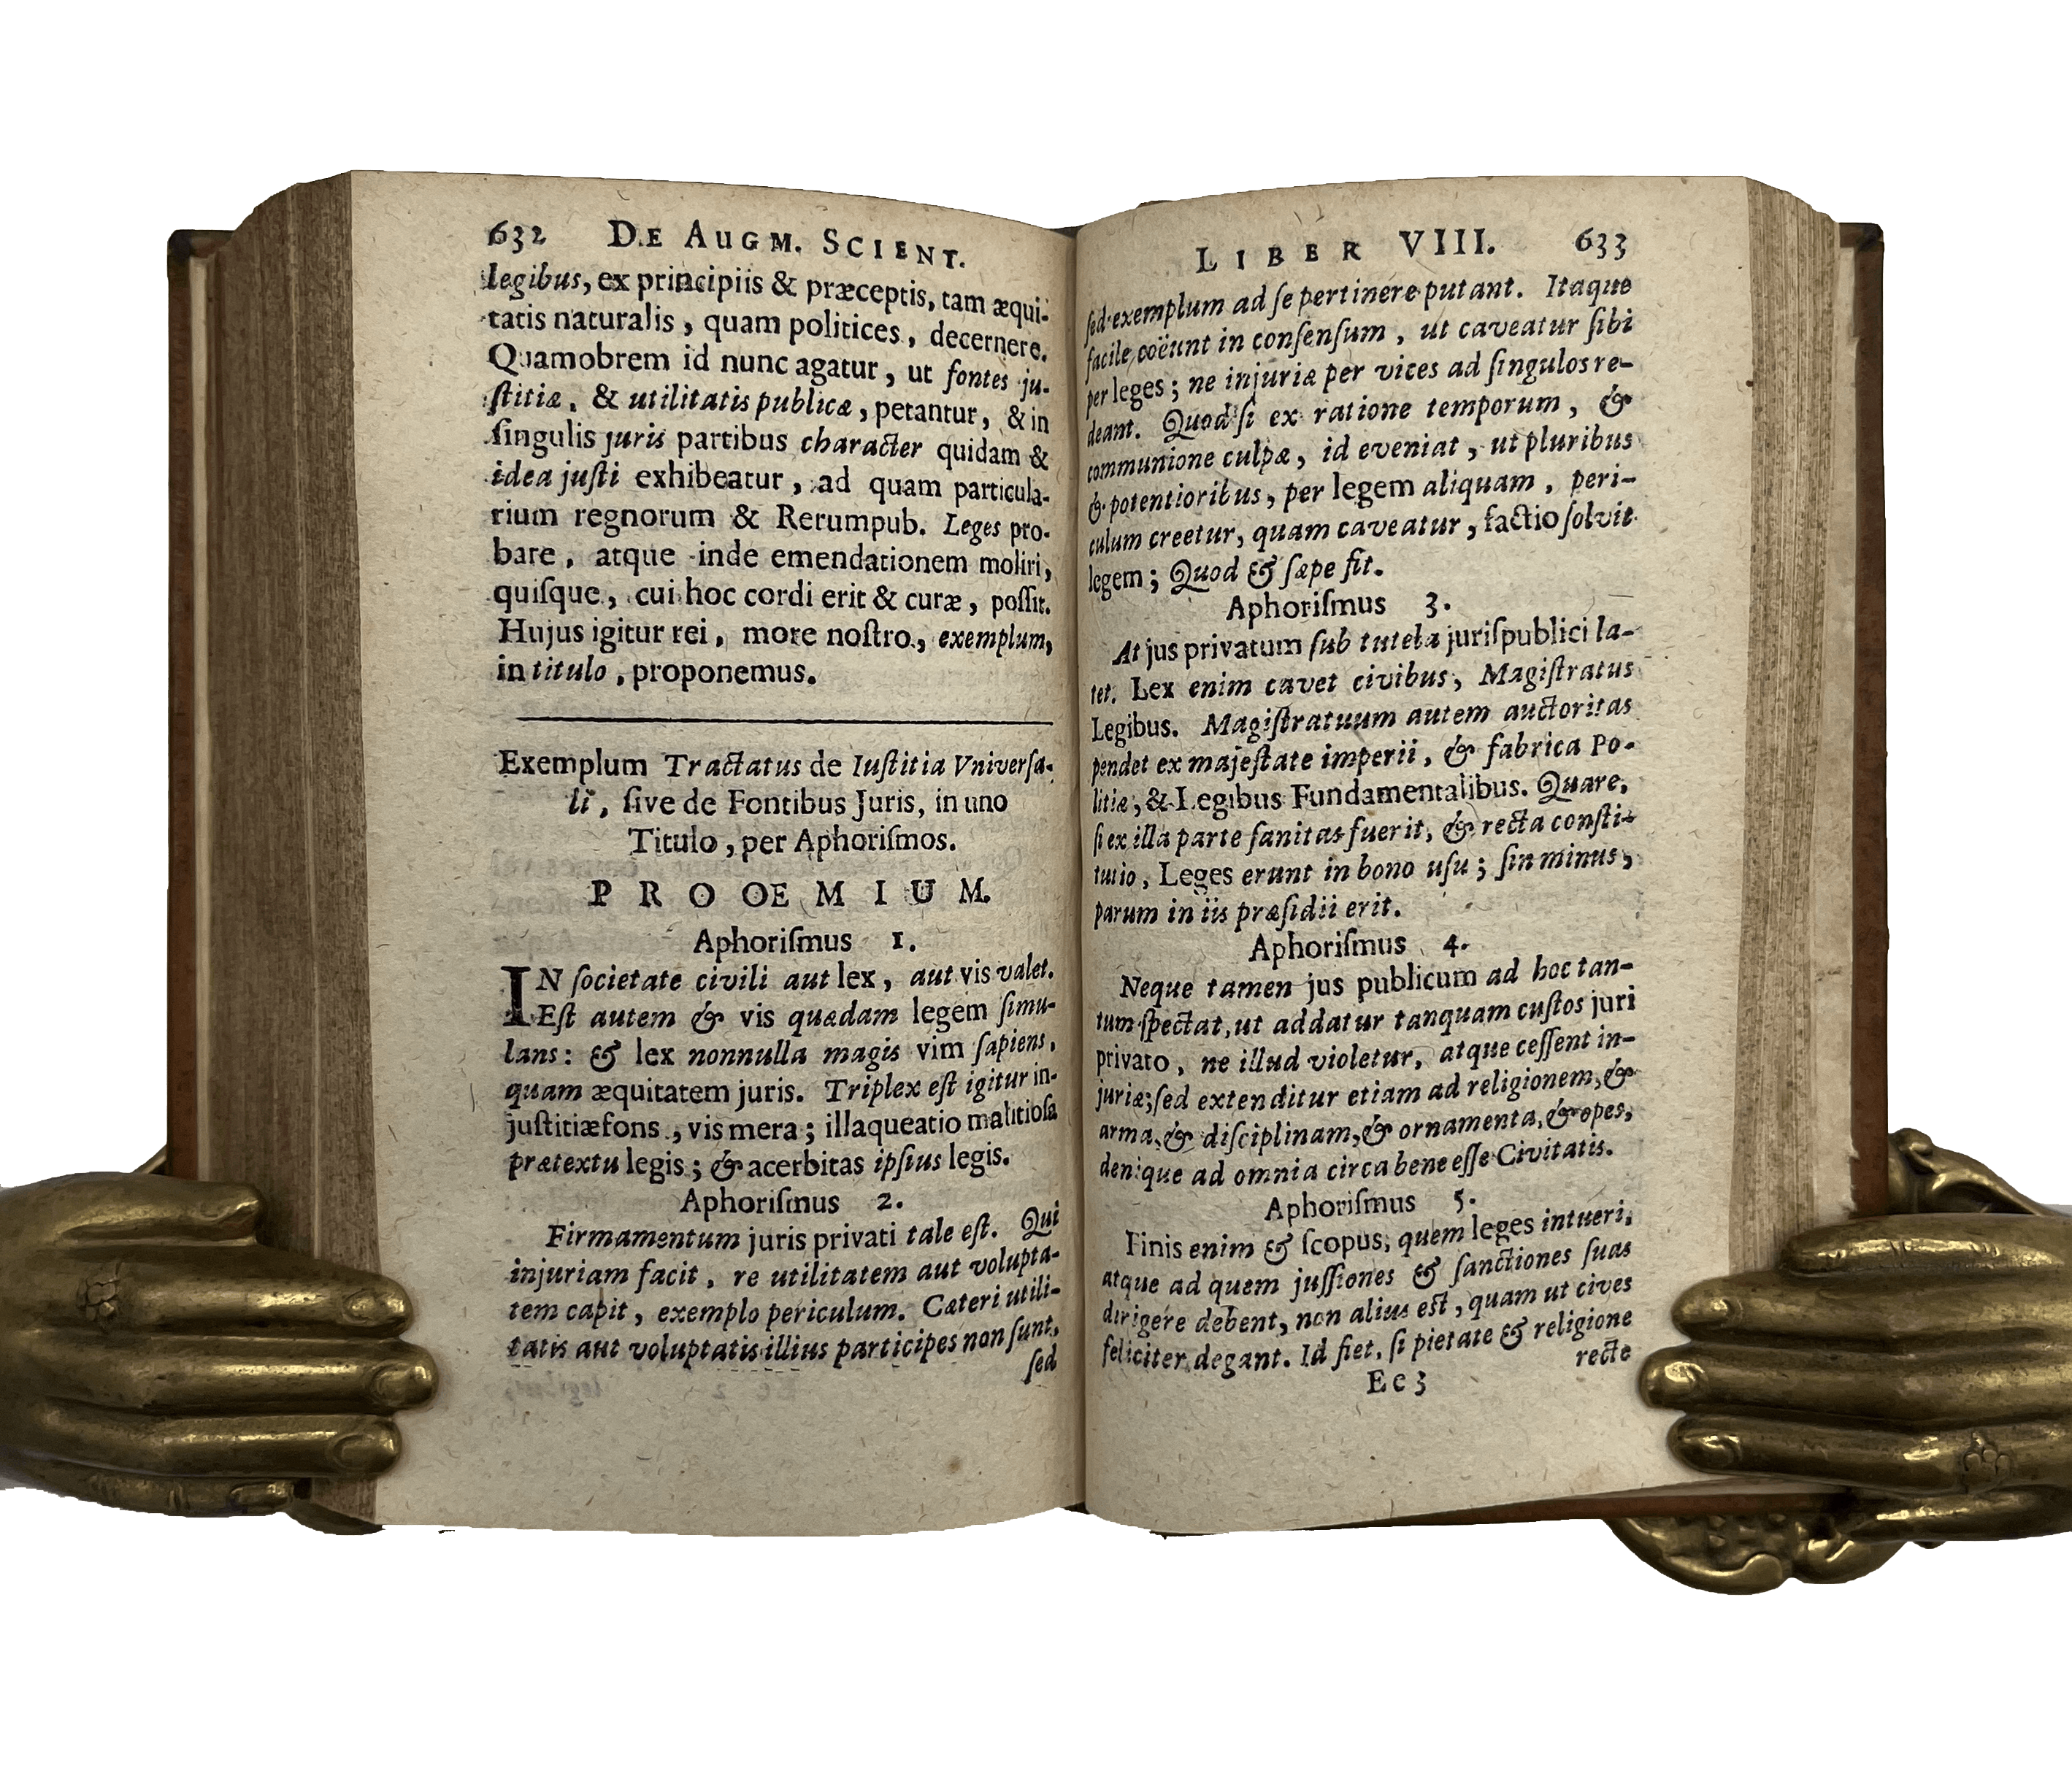 632 DE AUGM. SCIENT.
legibus, ex principiis & præceptis, tam æqui-
tatis naturalis, quam politices, decernere.
Quamobrem id nunc agatur, ut fontes ju-
ſtitiæ, & utilitatis publicæ, petantur, & in
ſingulis juris partibus character quidam &
idea juſti exhibeatur, ad quam particula-
rium regnorum & Rerumpub. Leges pro-
bare, atque inde emendationem moliri,
quiſque, cui hoc cordi erit & curæ, poſſit.
Hujus igitur rei, more noſtro, exemplum,
in titulo, proponemus.
Exemplum Tractatus de Iuſtitia Vniverſa-
li, ſive de Fontibus Juris, in uno
Titulo, per Aphoriſmos.
PROOEMIUM.
Aphoriſmus 1.
IN ſocietate civili aut lex, aut vis valet.
Eſt autem & vis quædam legem ſimu-
lans: & lex nonnulla magis vim ſapiens,
quam æquitatem juris. Triplex eſt igitur in-
juſtitiæ fons, vis mera; illaqueatio malitioſa
prætextu legis; & acerbitas ipſius legis.
Aphoriſmus 2.
Firmamentum juris privati tale eſt. Qui
injuriam facit, re utilitatem aut volupta-
tem capit, exemplo periculum. Cæteri utili-
tatis aut voluptatis illius participes non ſunt,
ſed
LIBER VIII. 633
ſed exemplum ad ſe pertinere putant. Itaque
facile coëunt in conſenſum, ut caveatur ſibi
per leges; ne injuriæ per vices ad ſingulos re-
deant. Quod ſi ex ratione temporum, &
communione culpæ, id eveniat, ut pluribus
& potentioribus, per legem aliquam, peri-
culum creetur, quam caveatur, factio ſolvit
legem; Quod & ſæpe fit.
Aphoriſmus 3.
At jus privatum ſub tutela juris publici la-
tet. Lex enim cavet civibus, Magiſtratus
Legibus. Magiſtratuum autem auctoritas
pendet ex majeſtate imperii, & fabrica Po-
litiæ, & Legibus Fundamentalibus. Quare,
ſi ex illa parte ſanitas fuerit, & recta conſti-
tutio, Leges erunt in bono uſu; ſin minus,
parum in iis præſidii erit.
Aphoriſmus 4.
Neque tamen jus publicum ad hoc tan-
tum ſpectat, ut addatur tanquam cuſtos juri
privato, ne illud violetur, atque ceſſent in-
juriæ; ſed extenditur etiam ad religionem, &
arma, & diſciplinam, & ornamenta, & opes,
denique ad omnia circa bene eſſe Civitatis.
Aphoriſmus 5.
Finis enim & ſcopus, quem leges intueri,
atque ad quem juſſiones & ſanctiones ſuas
dirigere debent, non alius eſt, quam ut cives
feliciter degant. Id fiet, ſi pietate & religione
recte
Ee 3